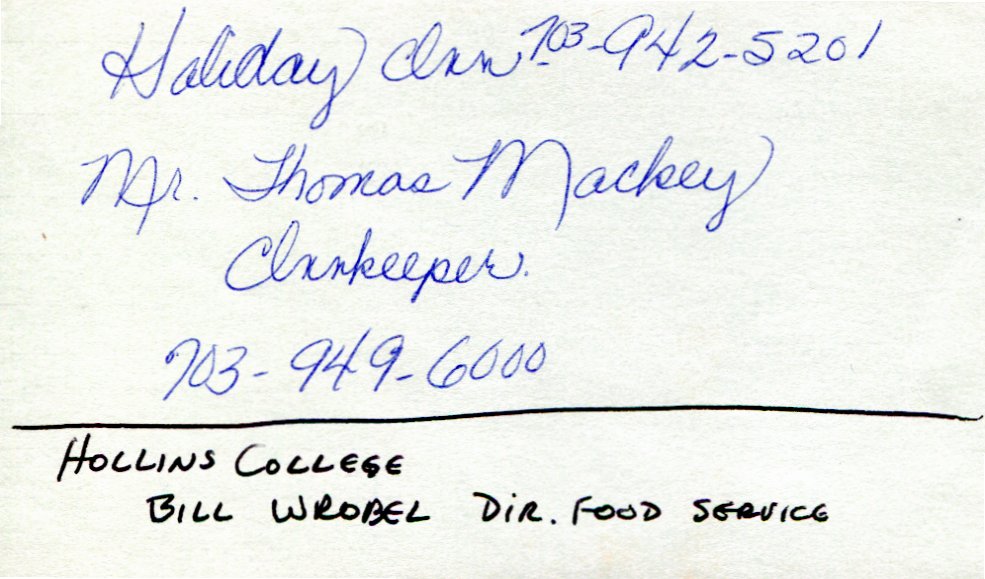 Holiday Inn 703-942-5201
Mr. Thomas Mackey
Innkeeper.
703-949-6000
HOLLINS COLLEGE
BILL WROBEL DIR. FOOD SERVICE